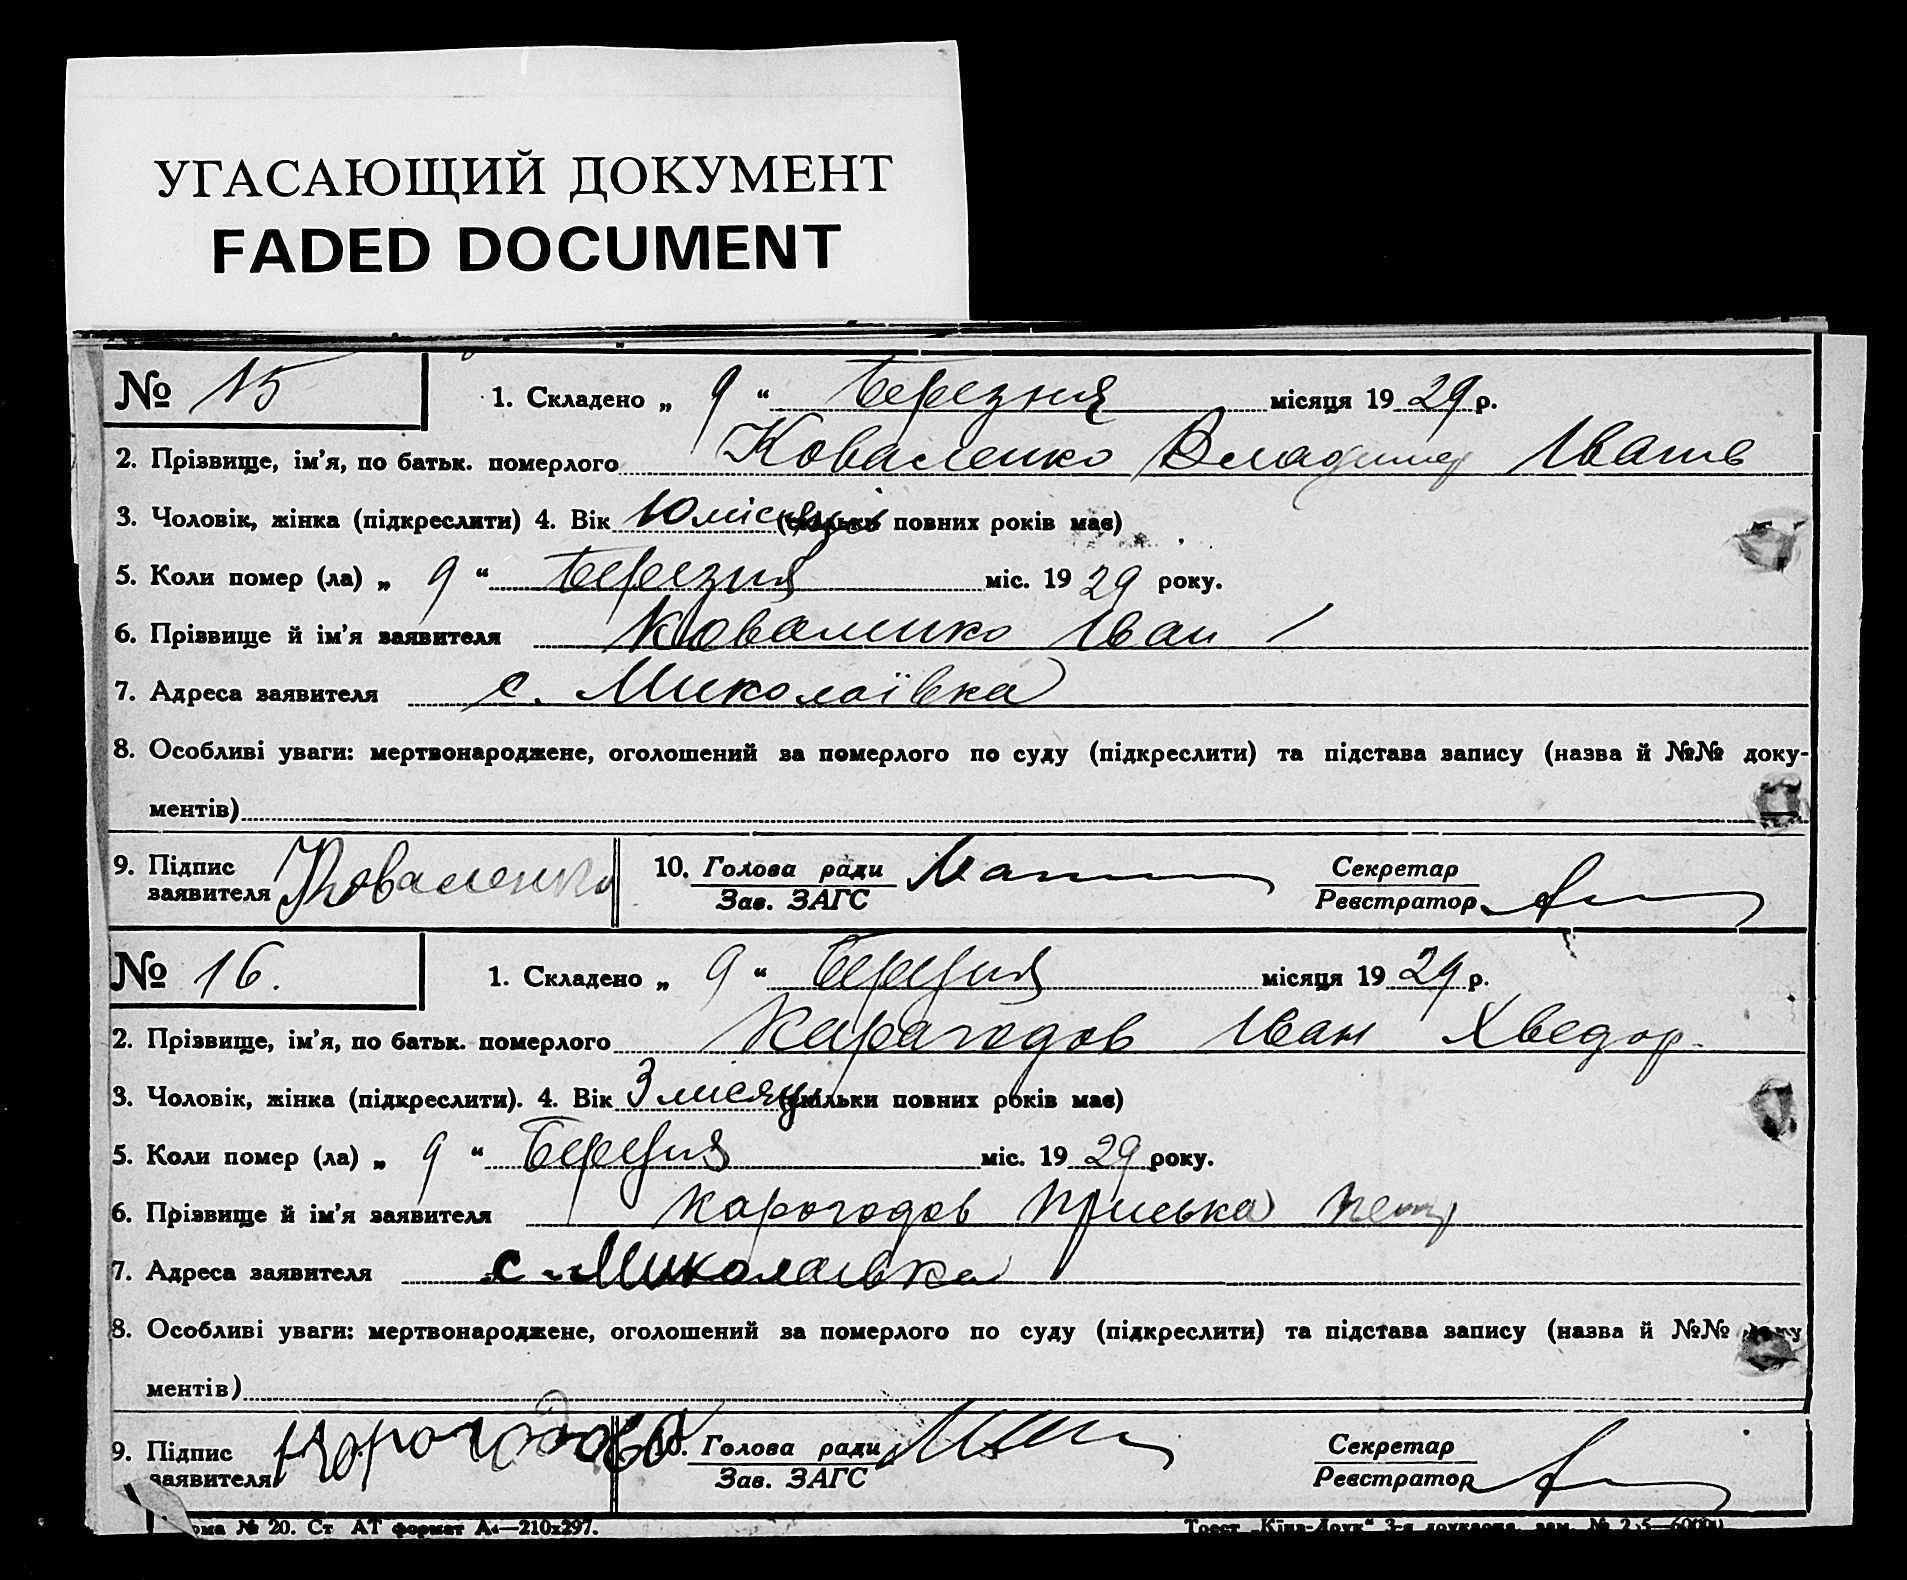 УГАСАЮЩИЙ ДОКУМЕНТ
FADED DOCUMENT
№ 15 1. Складено „ 9 “ Березня місяця 1929 р.
2. Прізвище, ім’я, по батьк. померлого Коваленко Владимер Іванів
3. Чоловік, жінка (підкреслити) 4. Вік 10 місяців (скільки повних років має)
5. Коли помер (ла) „ 9 “ Березня міс. 1929 року.
6. Прізвище й ім’я заявителя Коваленко Іван
7. Адреса заявителя с. Миколаївка
8. Особливі уваги: мертвонароджене, оголошений за померлого по суду (підкреслити) та підстава запису (назва й №№ доку-
ментів)
9. Підпис заявителя Коваленко 10. Голова ради Секретар
Зав. ЗАГС Реєстратор
№ 16. 1. Складено „ 9 “ Березня місяця 1929 р.
2. Прізвище, ім’я, по батьк. померлого Карагодов Іван Хведор.
3. Чоловік, жінка (підкреслити). 4. Вік 3 місяці (скільки повних років має)
5. Коли помер (ла) „ 9 “ Березня міс. 1929 року.
6. Прізвище й ім’я заявителя Карогодов Приська
7. Адреса заявителя с. Миколаівка
8. Особливі уваги: мертвонароджене, оголошений за померлого по суду (підкреслити) та підстава запису (назва й №№ доку
ментів)
9. Підпис заявителя Карогодова 10. Голова ради Секретар
Зав. ЗАГС Реєстратор
Форма № 20. Ст АТ формат А4—210х297. Трест „Кіно-Друк“ 3-я друкарня, зам. №